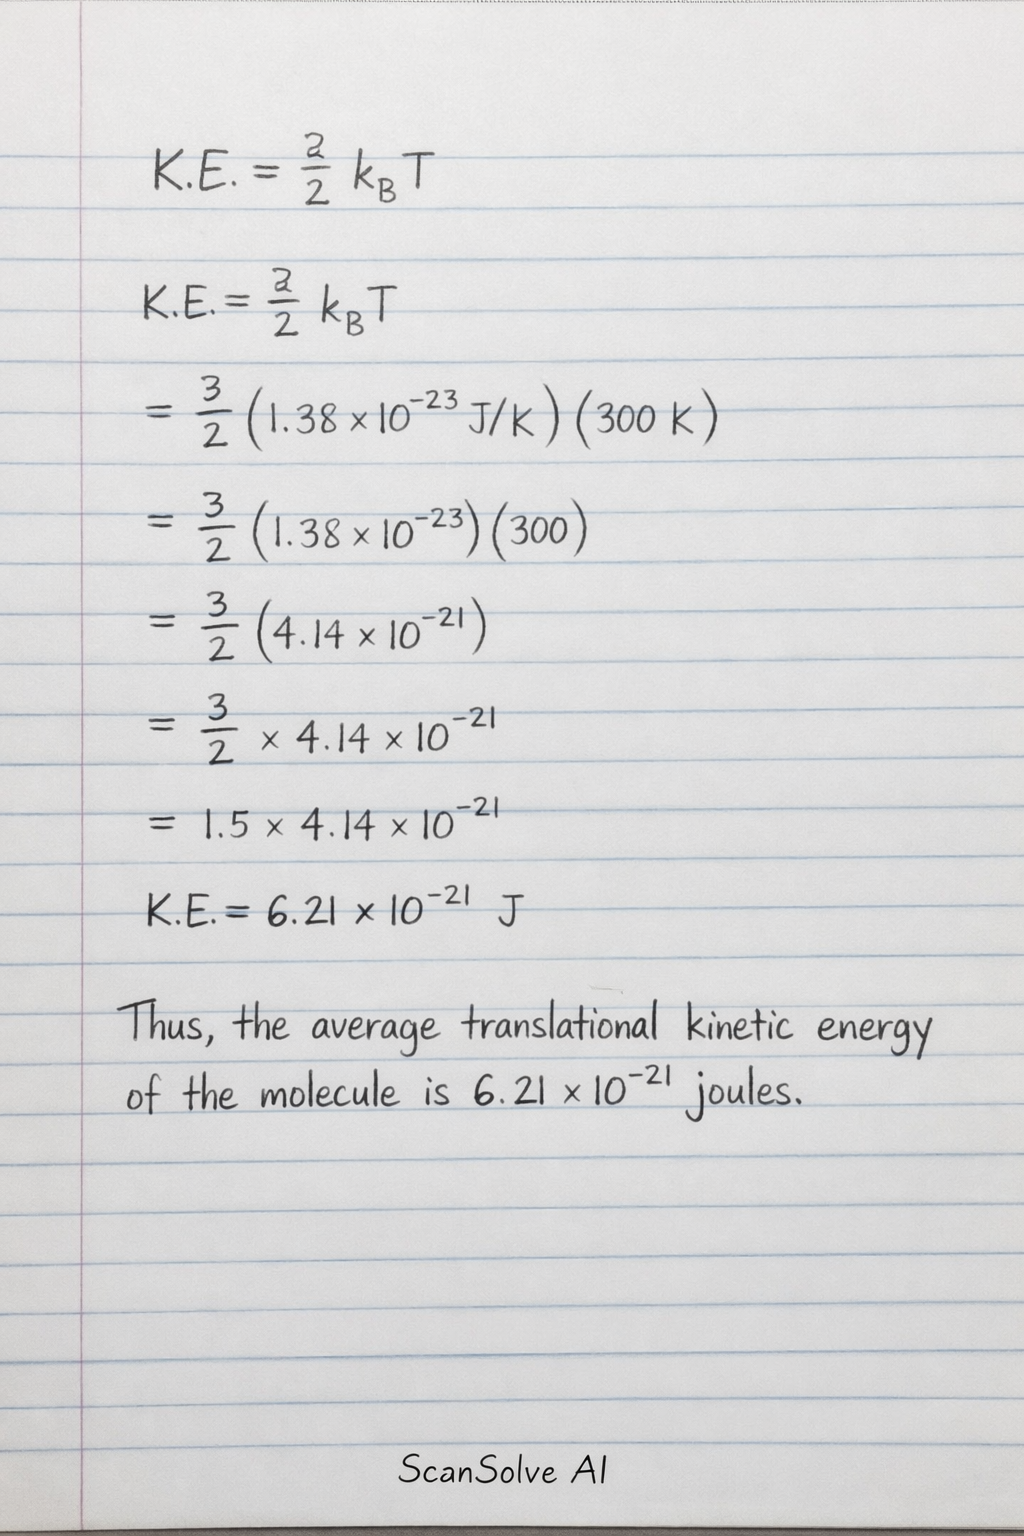 K.E. = 2/2 k_B T
K.E. = 2/2 k_B T
= 3/2 (1.38 × 10⁻²³ J/K) (300 K)
= 3/2 (1.38 × 10⁻²³) (300)
= 3/2 (4.14 × 10⁻²¹)
= 3/2 × 4.14 × 10⁻²¹
= 1.5 × 4.14 × 10⁻²¹
K.E. = 6.21 × 10⁻²¹ J
Thus, the average translational kinetic energy
of the molecule is 6.21 × 10⁻²¹ joules.
ScanSolve AI